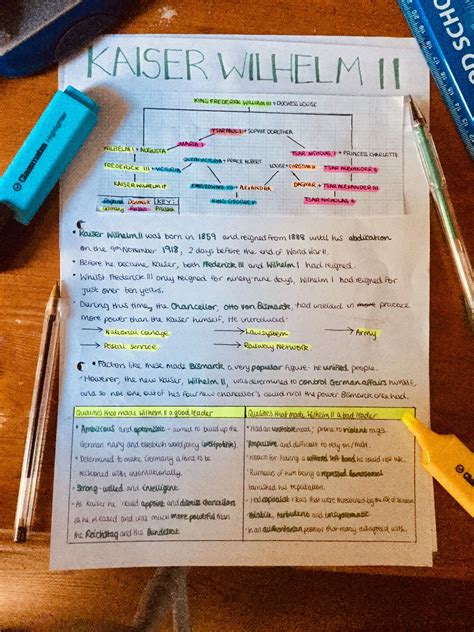 KAISER WILHELM II
KING FREDERICK WILLIAM III + DUCHESS LOUISE
TSAR PAUL I + SOPHIE DOROTHEA
WILHELM I + AUGUSTA
MARIA
TSAR NICHOLAS I + PRINCESS CHARLOTTE
FREDERICK III + VICTORIA
+ PRINCE ALBERT
LOUISE + CHRISTIAN IX
TSAR ALEXANDER II
KAISER WILHELM II
ALEXANDRA
DAGMAR + TSAR ALEXANDER III
TSAR NICHOLAS II
England Denmark KEY:
Germany Russia Prussia
• Kaiser Wilhelm II was born in 1859 and reigned from 1888 until his abdication
on the 9th November 1918, 2 days before the end of World War II.
• Before he became Kaiser, both Frederick III and Wilhelm I had reigned.
• Whilst Frederick III only reigned for ninety-nine days, Wilhelm I had reigned for
just over ten years.
• During this time, the Chancellor, Otto von Bismarck, had wielded in more practice
more power than the Kaiser himself. He introduced:
→ National Coinage → Law system → Army
→ Postal Service → Railway Network
• Factors like these made Bismarck a very popular figure. He unified people.
However, the new Kaiser, Wilhelm II, was determined to control German affairs himself,
and so not one out of his four new chancellors could hold the power Bismarck once had.
Qualities that made Wilhelm II a good leader
Qualities that made Wilhelm II a bad leader
• Ambitious and optimistic - aimed to build up the
German navy and establish world policy (weltpolitik).
• Determined to make Germany a force to be
reckoned with, internationally.
• Strong-willed and intelligent
• As Kaiser he could appoint and dismiss chancellors
as he pleased and was much more powerful than
the Reichstag and the Bundesrat.
• Had an unstable mood; prone to violent rages.
• Impulsive and difficult to rely on/trust.
• Known for having a withered left hand he could not use.
• Rumours of him being a repressed homosexual
tarnished his reputation.
• Had capitalist ideas that were threatened by the rise of socialism
• Volatile, turbulent and unsystematic
• Is an authoritarian person that many disagreed with.